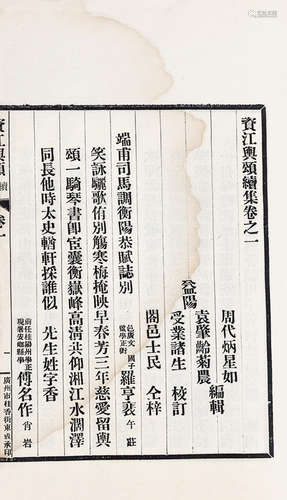 資江輿頌續集卷之一
周代炳星如
袁肇齡菊農 編輯
益陽
受業諸生 校訂
闔邑士民 仝梓
端甫司馬調衡陽恭賦誌別 邑廣文國子監學正銜 羅亨衰 午莊
笑詠驪歌侑別觴寒梅掩映早春芳三年慈愛留輿
頌一騎琴書即宦囊衡嶽峰高清共仰湘江水潤澤
同長他時太史輶軒採誰似 先生姓字香
前任桂陽州學正現署安鄉縣學 傅名作 肖岩
資江輿頌 續 卷一
一
廣州市桂香街東成承印